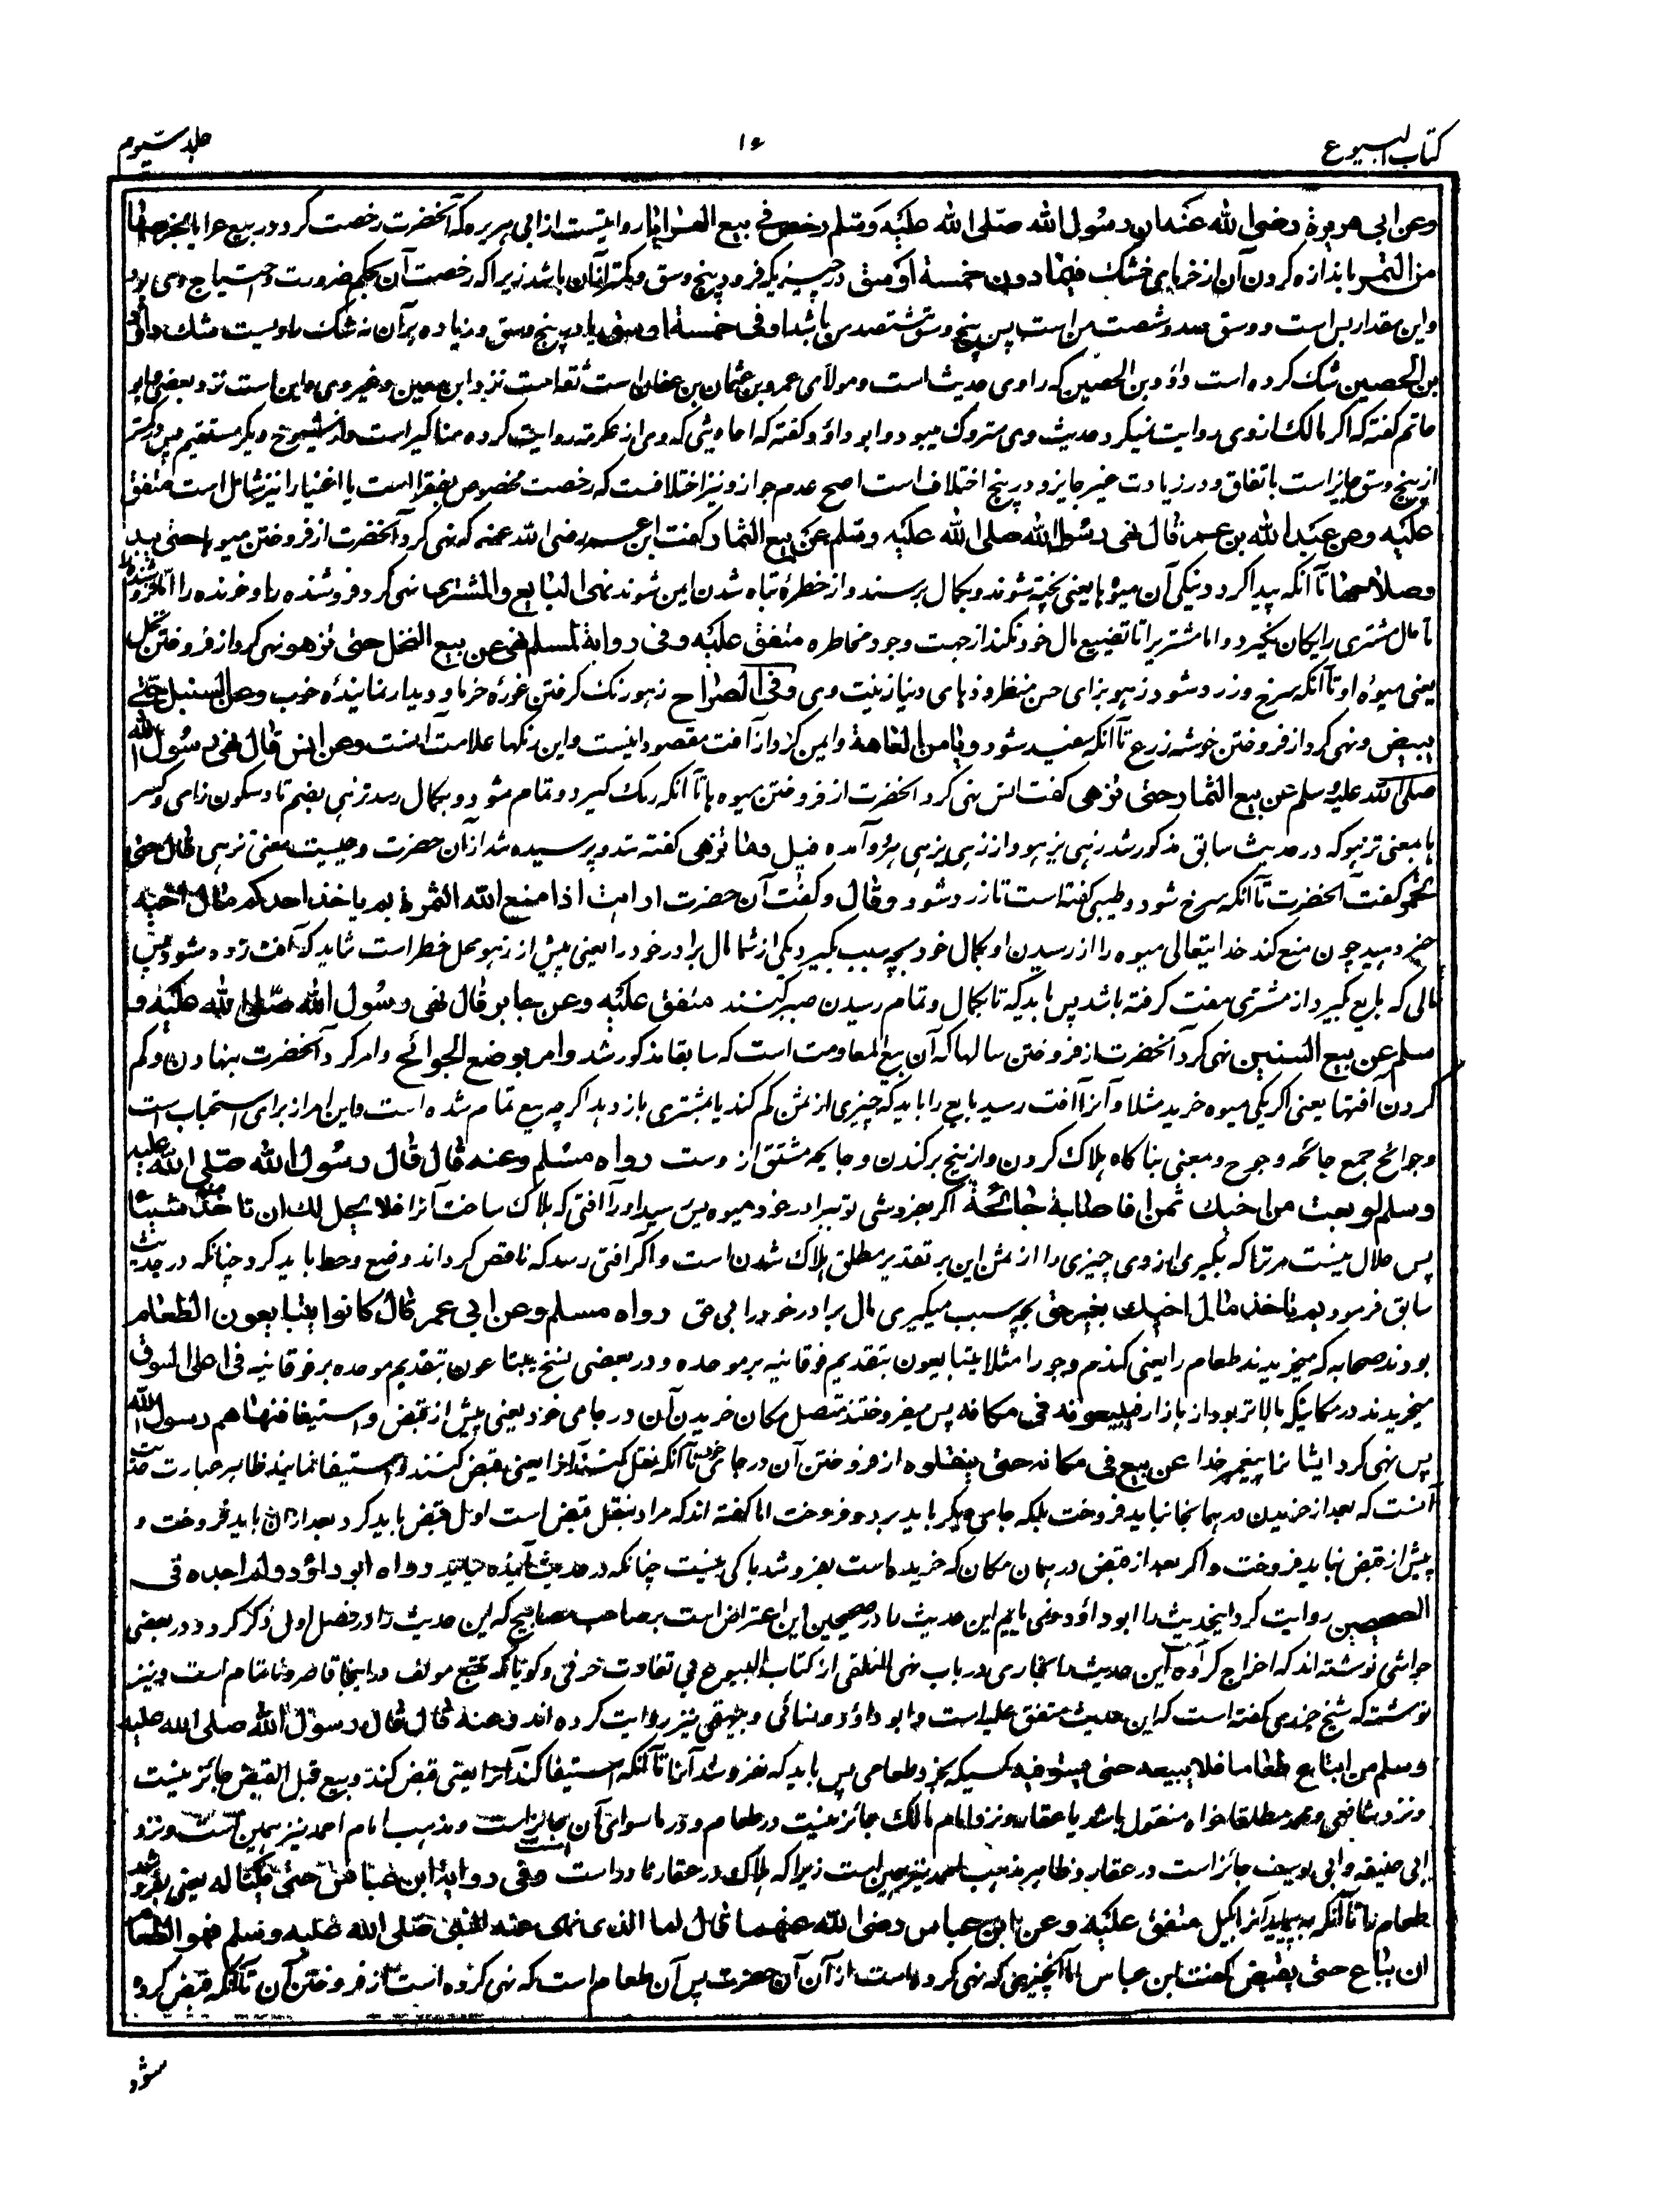 کتاب البیوع
۱۶
جلد سیوم
وعن ابی هریرة رضی الله عنه ان رسول الله صلی الله علیه وسلم رخص فی بیع العرایا روایتست از ابی هریره که آنحضرت رخصت کرد در بیع عرایا بخرصها
من التمر باندازه کردن آن از خرمای خشک فیما دون خمسة اوسق در چیزیکه فرود پنج وسق و کمتر ازان باشد زیرا که رخصت آن بحکم ضرورت و احتیاج و می بود
و این مقدار بس است و وسق صد و شصت من است پس پنج وسق هشتصد من باشد او فی خمسة اوسق یا در پنج وسق و زیاده بر آن نه شک راویست شک داؤد
بن الحصین شک کرده است داؤد بن الحصین که راوی حدیث است و مولای عمرو بن عثمان بن عفان است ثقه است نزد ابن معین و غیر وی و این است نزد بعضی و ابو
حاتم گفته که اگر مالک از وی روایت نمیکرد حدیث وی متروک میبود و ابو داؤد گفته که احادیثی که وی از عکرمه روایت کرده مناکیر است و از شیوخ دیگر مستقیم پس در کمتر
از پنج وسق جایز است باتفاق و در زیادت غیر جایز و در پنج اختلاف است اصح عدم جواز و نیز اختلافست که رخصت مخصوص بفقرا است یا اغنیا را نیز شامل است متفق
علیه وعن عبد الله بن عمر قال نهی رسول الله صلی الله علیه وسلم عن بیع الثمار گفت ابن عمر رضی الله عنه که نهی کرد آنحضرت از فروختن میوها حتی یبدو
صلاحها تا آنکه پیدا گردد نیکی آن میوها یعنی پخته شوند و بکمال برسند و از خطرهٔ تباه شدن ایمن شوند نهی البایع والمشتری نهی کرد فروشنده را و خرنده را اما فروشنده را
تا مال مشتری رایگان نگیرد و اما مشتری را تا تضییع مال خود نکند از جهت وجود مخاطره متفق علیه وفی روایة لمسلم نهی عن بیع النخل حتی تزهو نهی کرد از فروختن نخل
یعنی میوه او تا آنکه سرخ و زرد شود زهو بزای حسن منظر و زهای دنیا زینت وی وفی الصراح زهو رنگ گرفتن غورهٔ خرما و دیدار نمایندهٔ خوب وعن السنبل حتی
یبیض و نهی کرد از فروختن خوشه زرع تا آنکه سفید شود ویامن العاهة و ایمن گردد از آفت مقصود اینست و این رنگها علامت آنست وعن انس قال نهی رسول الله
صلی الله علیه وسلم عن بیع الثمار حتی تزهی گفت انس نهی کرد آنحضرت از فروختن میوه ها تا آنکه رنگ گیرد و تمام شود و بکمال رسد تزهی بضم تا و سکون زای و کسر
ها بمعنی تزهو که در حدیث سابق مذکور شد زهی یزهو و از زهی یزهی هر دو آمده قیل وما تزهی گفته شد و پرسیده شد از آن حضرت و چیست معنی تزهی قال حتی
تحمر گفت آنحضرت تا آنکه سرخ شود و طیبی گفته است تا زرد شود وقال و گفت آن حضرت ارایت اذا منع الله الثمرة بم یاخذ احدکم مال اخیه
خبر دهید چون منع کند خدایتعالی میوه را از رسیدن او بکمال خود بچه سبب بگیرد یکی از شما مال برادر خود را یعنی پیش از زهو محل خطر است شاید که آفت زده شود پس
مالی که بایع بگیرد از مشتری مفت گرفته باشد پس باید که تا بکمال و تمام رسیدن صبر کنند متفق علیه وعن جابر قال نهی رسول الله صلی الله علیه و
سلم عن بیع السنین نهی کرد آنحضرت از فروختن سالها که آن بیع المعاومت است که سابقا مذکور شد وامر بوضع الجوائح و امر کرد آنحضرت بنهادن و کم
کردن آفتها یعنی اگر یکی میوه خرید مثلا و آنرا آفت رسید بایع را باید که چیزی از ثمن کم کند یا بمشتری باز دهد اگرچه بیع تمام شده است و این امر از برای استحباب است
و جوائح جمع جائحه و جوح و معنی بناگاه هلاک کردن و از بیخ برکندن و جایحه مشتق از وست رواه مسلم وعنه قال قال رسول الله صلی الله علیه
وسلم لو بعت من اخیک ثمرا فاصابته جائحة اگر بفروشی تو ببرادر خود میوه پس رسید او را آفتی که هلاک ساخت آنرا فلا یحل لک ان تاخذ منه شیئا
پس حلال نیست مر ترا که بگیری از وی چیزی را از ثمن این بر تقدیر مطلق هلاک شدن است و اگر آفتی رسد که ناقص گرداند وضع و حط باید کرد چنانکه در حدیث
سابق فرمود بم تاخذ مال اخیک بغیر حق بچه سبب میگیری مال برادر خود را بی حق رواه مسلم وعن ابی عمر قال کانوا یتبایعون الطعام
بودند صحابه که میخریدند طعام را یعنی گندم و جو را مثلا یتبایعون بتقدیم فوقانیه بر موحده و در بعضی نسخ یبتاعون بتقدیم موحده بر فوقانیه فی اعلی السوق
میخریدند در مکانیکه بالاتر بود از بازار فیبیعونه فی مکانه پس میفروختند متصل مکان خریدن آن در جای خود یعنی پیش از قبض و استیفا فنهاهم رسول الله
پس نهی کرد ایشانرا پیغمبر خدا عن بیعه فی مکانه حتی ینقلوه از فروختن آن در جای خود تا آنکه نقل کنند آنرا یعنی قبض کنند و استیفا نمایند ظاهر عبارت حدیث
آنست که بعد از خریدن در همانجا نباید فروخت بلکه جای دیگر باید برد و فروخت اما گفته اند که مراد بنقل قبض است اول قبض باید کرد بعد ازان باید فروخت و
پیش از قبض نباید فروخت و اگر بعد از قبض در همان مکان که خریده است بفروشد باکی نیست چنانکه در حدیث آینده بیاید رواه ابو داؤد ولم اجده فی
الصحیحین روایت کرد اینحدیث را ابو داؤد و نمی یابیم این حدیث را در صحیحین این اعتراض است بر صاحب مصابیح که این حدیث را در فصل اول ذکر کرد و در بعضی
حواشی نوشته اند که اخراج کرده است این حدیث را بخاری در باب نهی التلقی از کتاب البیوع بی تفاوت حرفی و گویا که تتبع مولف در اینجا قاصر و ناتمام است و نیز
نوشته که شیخ جزری گفته است که این حدیث متفق علیه است و ابو داؤد و نسائی و بیهقی نیز روایت کرده اند وعنه قال قال رسول الله صلی الله علیه
وسلم من ابتاع طعاما فلا یبیعه حتی یستوفیه کسیکه بخرد طعامی پس باید که نفروشد آنرا تا آنکه استیفا کند آنرا یعنی قبض کند و بیع قبل القبض جائز نیست
و نزد شافعی و محمد مطلقا خواه منقول باشد یا عقار و نزد امام مالک جائز نیست در طعام و در ما سوای آن جائز است و مذهب امام احمد نیز همین است و نزد
ابی حنیفه و ابی یوسف جائز است در عقار و ظاهر مذهب احمد نیز همین است زیرا که هلاک در عقار نادر است وفی روایة ابن عباس حتی یکتاله یعنی نفروشد
طعام را تا آنکه به پیماید آنرا بکیل متفق علیه وعن ابن عباس رضی الله عنهما قال اما الذی نهی عنه النبی صلی الله علیه وسلم فهو الطعام
ان یباع حتی یقبض گفت ابن عباس اما آنچیزی که نهی کرده است از آن آن حضرت پس آن طعام است که نهی کرده است از فروختن آن تا آنکه قبض کرده
شود